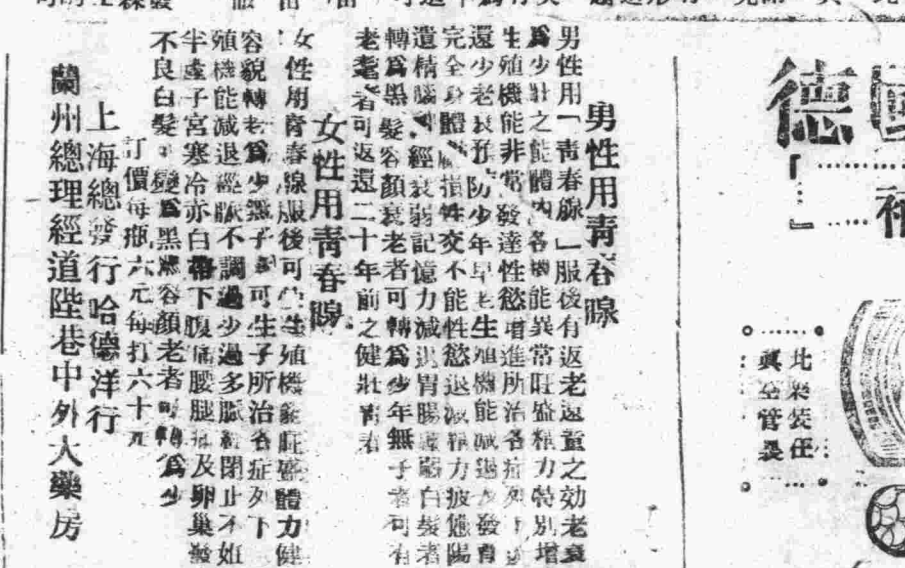 德國
男性用靑春腺
男性用「靑春腺」服後有返老還童之効老衰
爲少壯之能體內各機能異常旺盛精力特別增
生殖機能非常發達性慾增進所治各症列下
還少老衰預防少年早老生殖機能減退發育
完全身體虧損性交不能性慾退減精力疲憊陽
遺精腦經衰弱記憶力減退胃腸白髮者
轉爲黑髮容顏衰老者可轉爲少年無子者可有
老耄者可返還二十年前之健壯靑春
女性用靑春腺
女性用靑春線服後可生殖機能旺盛體力健
容貌轉老爲少無子可生子所治各症列下
殖機能減退經脈不調過少過多脈經閉止不姙
半產子宮寒冷赤白帶下腹痛腰腿痛及卵巢發
不良白髮變爲黑髮容顏老者轉爲少
訂價每瓶六元每打六十元
上海總發行哈德洋行
蘭州總理經道陞巷中外大藥房
此架裝任
眞空管